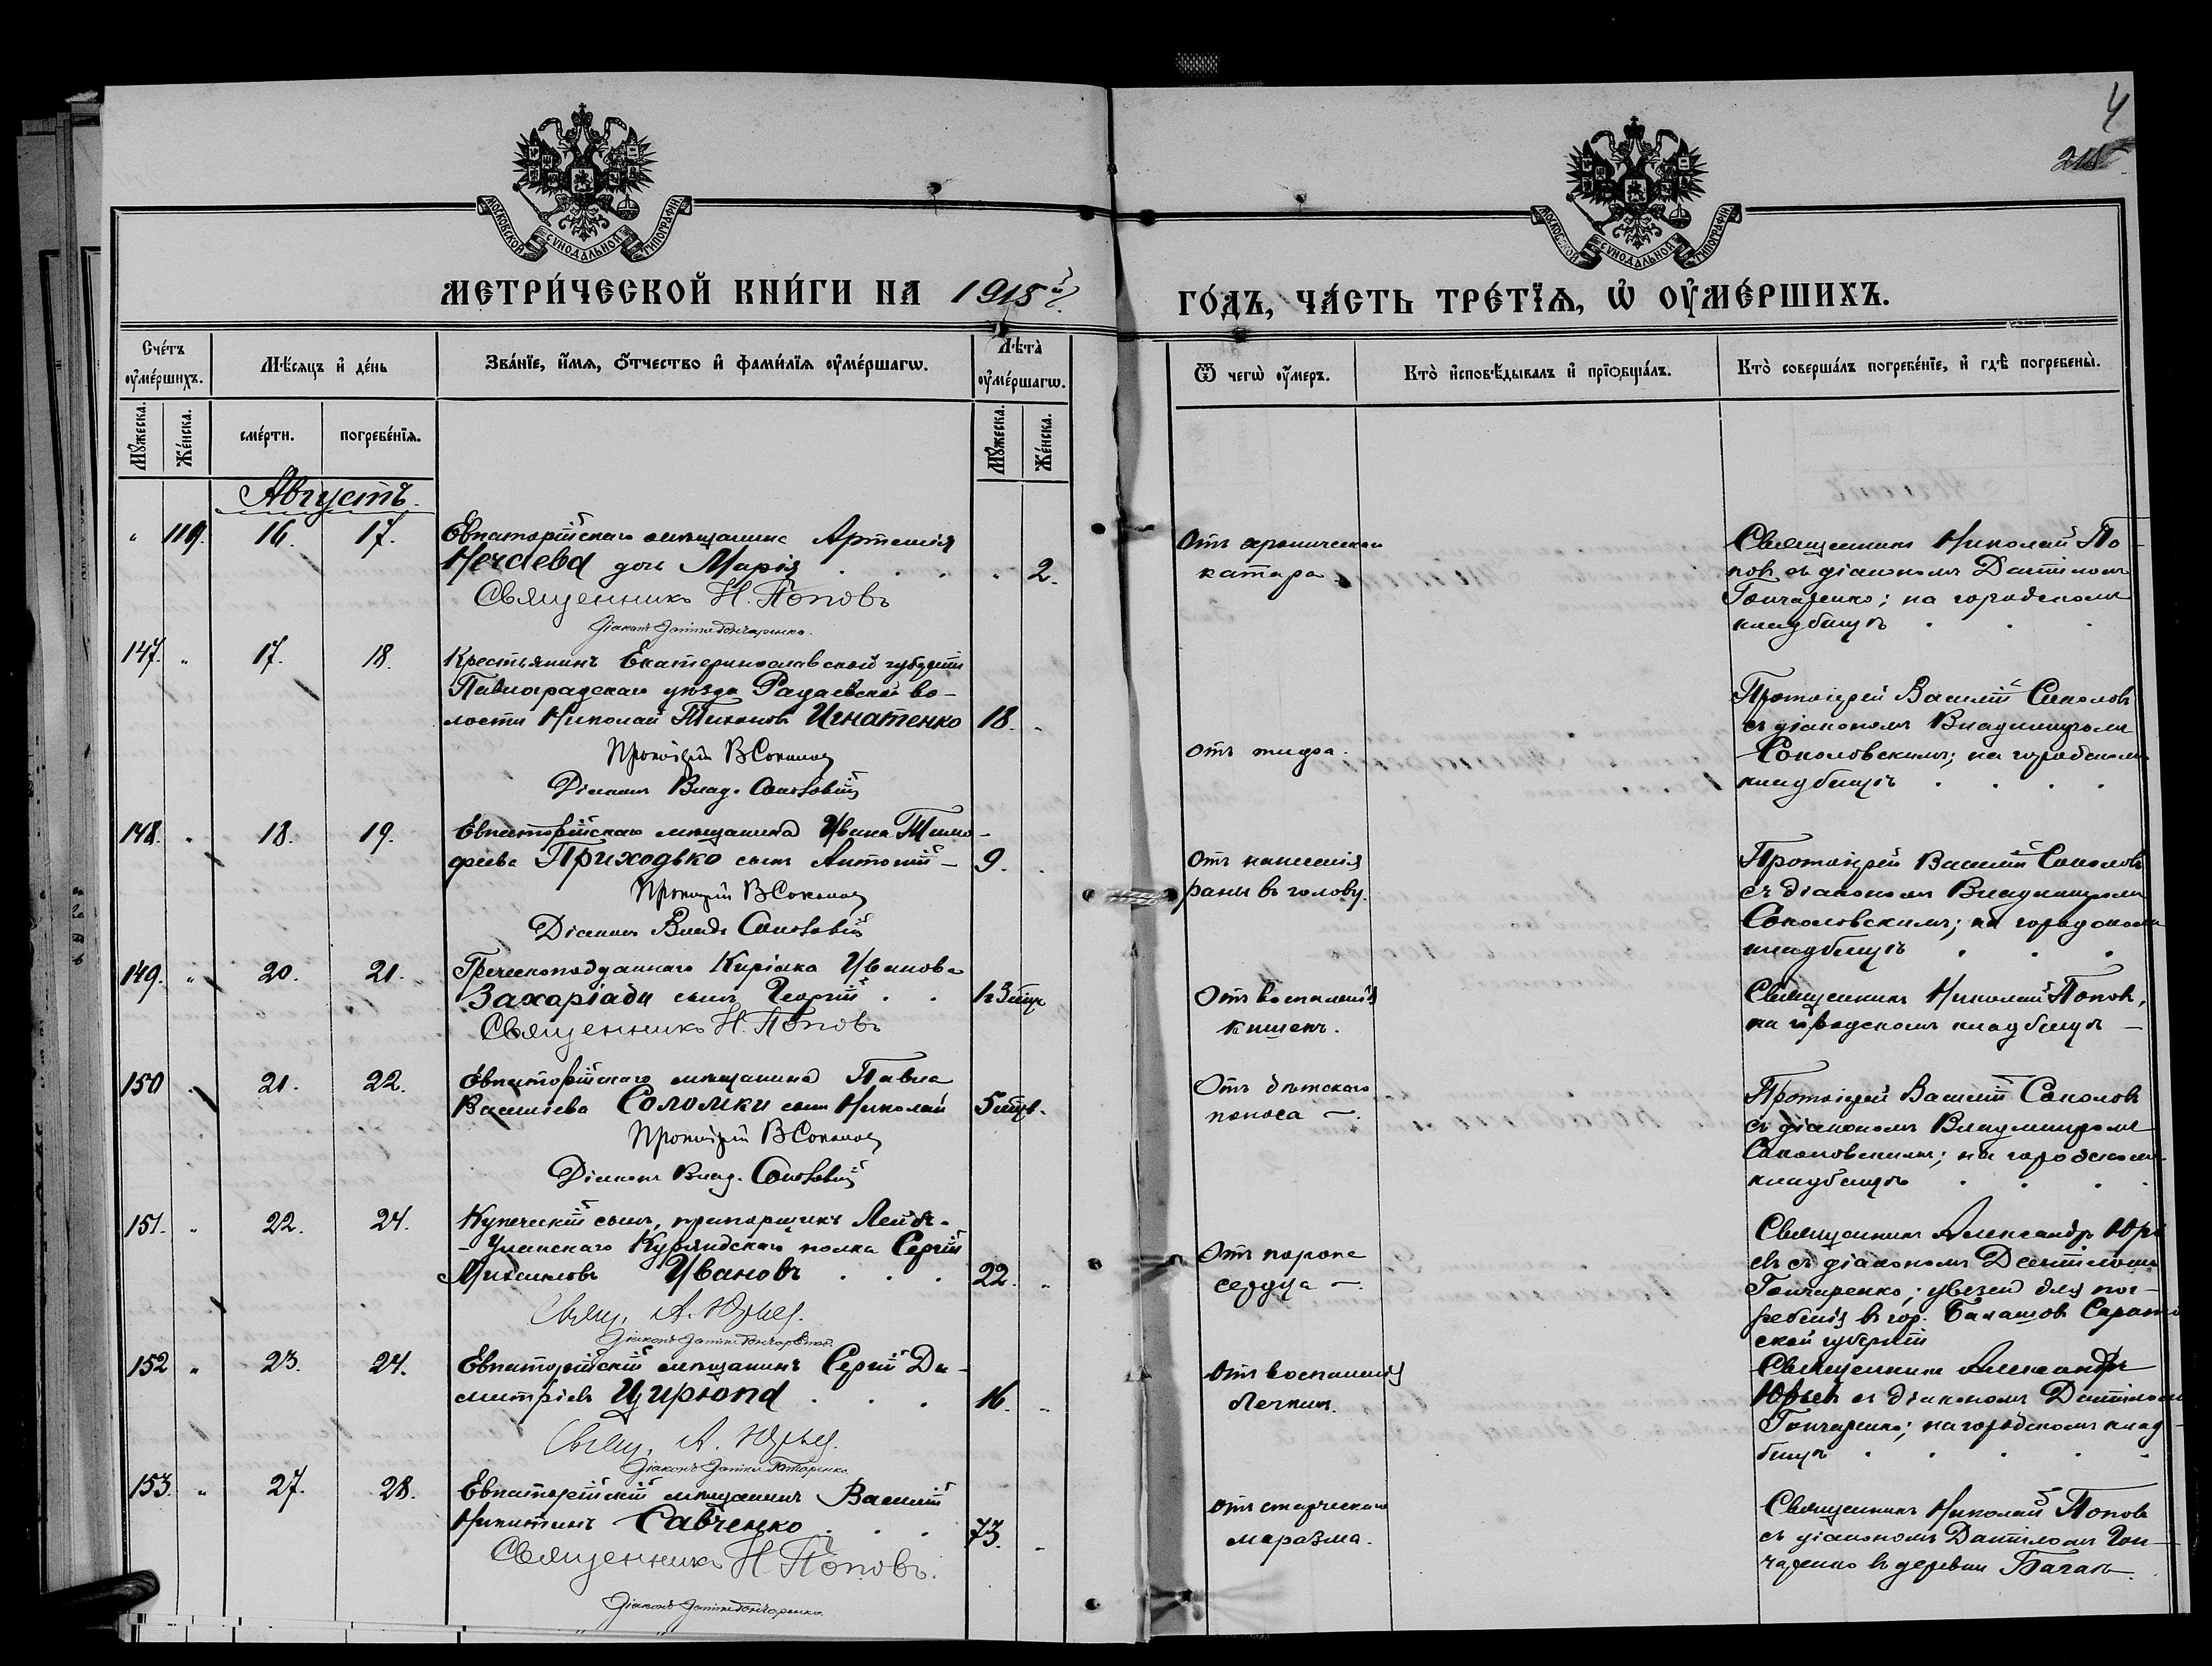 4
МОСКОВСКОЙ СУНОДАЛЬНОЙ ТИПОГРАФІИ
МОСКОВСКОЙ СУНОДАЛЬНОЙ ТИПОГРАФІИ
МЕТРИ́ЧЕСКОЙ КНИ́ГИ НА 1915 й
ГО́ДЪ, ЧА́СТЬ ТРЕ́ТЇѦ, Ѡ ОУ҆МЕ́РШИХЪ.
Сче́тъ оу҆ме́ршихъ.
Мѣ́сяцъ и҆ де́нь
Зва́нїе, и҆́мѧ, ѻ҆́тчество и҆ фами́лїѧ оу҆ме́ршагѡ.
Лѣ́та̀ оу҆ме́ршагѡ.
Ѿ чегѡ̀ оу҆́меръ.
Кто̀ и҆сповѣ́дывалъ и҆ прїѡбща́лъ.
Кто̀ соверша́лъ погребе́нїе, и҆ гдѣ̀ погребены̀.
Мꙋ́жеска.
Же́нска.
сме́рти.
погребе́нїѧ.
Мꙋ́жеска.
Же́нска.
Августъ.
" 119. 16. 17. Евпаторійскаго мѣщанина Артемія
дочь Марія . . . " 2.
Священникъ Н. Поповъ
Діаконъ Даніилъ Гончаренко.
Отъ хроническаго
катара
Священникъ Николай По-
повъ съ діакономъ Даніиломъ
Гончаренко; на городскомъ
кладбищѣ . . .
147. " 17. 18. Крестьянинъ Екатеринославской губерніи
Павлоградскаго уѣзда во-
лости Николай Тихоновъ Игнатенко 18. "
Протоіерей В Соколовъ
Діаконъ Влад. Соколовскій
Отъ тифа.
Протоіерей Василій Соколовъ
съ діакономъ Владимиромъ
Соколовскимъ; на городскомъ
кладбищѣ . . . .
148. " 18. 19. Евпаторійскаго мѣщанина Ивана Тимо-
феева Приходько сынъ Антоній - 9. "
Протоіерей В Соколовъ
Діаконъ Влад. Соколовскій
Отъ нанесенія
раны въ голову.
Протоіерей Василій Соколовъ
съ діакономъ Владимиромъ
Соколовскимъ; на городскомъ
кладбищѣ . . .
149. " 20. 21. Греческоподданнаго Киріака Иванова
Захаріади сынъ Георгій . .
Священникъ Н. Поповъ
Отъ воспаленія
кишекъ.
Священникъ Николай Поповъ,
на городскомъ кладбищѣ —
150 " 21. 22. Евпаторійскаго мѣщанина Павла
Васильева Соломки сынъ Николай 5 мѣс.
Протоіерей В Соколовъ
Діаконъ Влад. Соколовскій
Отъ дѣтскаго
поноса —.
Протоіерей Василій Соколовъ
съ діакономъ Владимиромъ
Соколовскимъ; на городскомъ
кладбищѣ . . . .
151. " 22. 24. Купеческій сынъ, прапорщикъ Лейбъ-
-Уланскаго Курляндскаго полка Сергій
Максимовъ Ивановъ . . . 22. "
Свящ. А. Юрьев.
Діаконъ Даніилъ Гончаренко.
Отъ порока
сердца —.
Священникъ Александръ Юрь
евъ съ діакономъ Даніиломъ
Гончаренко; увезенъ для пог-
ребенія въ гор. Балашовъ Сарато
ской губерніи
152 " 23. 24. Евпаторійскій мѣщанинъ Сергій Ди-
митріевъ Цирюпа . . . 16. "
Свящ. А. Юрьев.
Діаконъ Даніилъ Гончаренко
Отъ воспаленія
легкихъ.
Священникъ Александръ
Юрьевъ съ діакономъ Даніиломъ
Гончаренко; на городскомъ клад-
бищѣ . . . .
153. " 27. 28. Евпаторійскій мѣщанинъ Василій
Никитинъ Савченко . . . 73. "
Священникъ Н. Поповъ.
Діаконъ Даніилъ Гончаренко.
Отъ старческаго
маразма.
Священникъ Николай Поповъ
съ діакономъ Даніиломъ Гон-
чаренко въ деревни